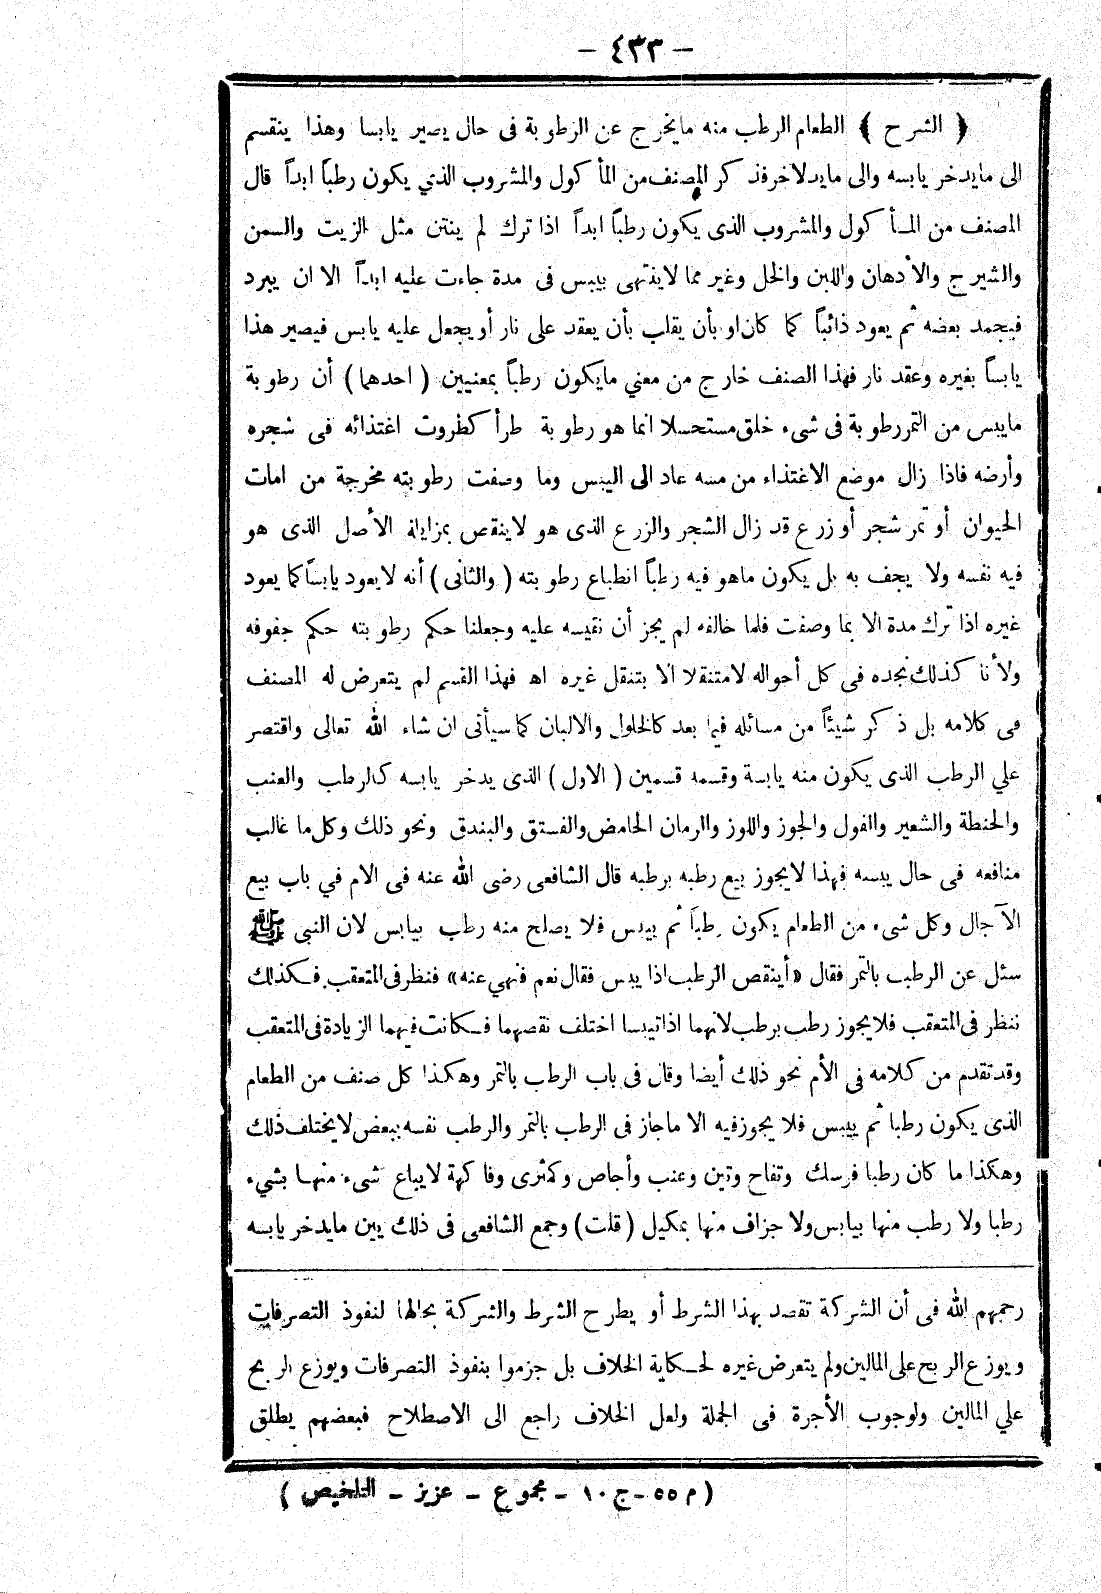 - ٤٣٣ -
﴿ الشرح ﴾ الطعام الرطب منه مايخرج عن الرطوبة فى حال يصير يابسا وهذا ينقسم
الى مايدخر يابسه والى مايدلاخر فذكر المصنف من المأكول والمشروب الذي يكون رطباً ابداً قال
المصنف من المـأكول والمشروب الذى يكون رطباً ابداً اذا ترك لم ينتن مثل الزيت والسمن
والشيرج والأدهان واللبن والخل وغير مما لاينتهى بيبس فى مدة جاءت عليه ابداً الا ان يبرد
فيجمد بعضه ثم يعود ذائباً كما كان او بأن يقلب بأن يعقد على نار أو يجعل عليه يابس فيصير هذا
يابساً بغيره وعقد نار فهذا الصنف خارج من معني مايكون رطباً بمعنيين ( احدهما ) أن رطوبة
مايبس من التمر رطوبة فى شىء خلق مستحسلا انما هو رطوبة طرأ كطروت اغتذائه فى شجره
وأرضه فاذا زال موضع الاغتذاء من منبه عاد الى اليبس وما وصفت رطوبته مخرجة من امات
الحيوان أو ثمر شجر أو زرع قد زال الشجر والزرع الذى هو لاينقص بمزايلة الأصل الذى هو
فيه نفسه ولا يجف به بل يكون ماهو فيه رطباً انطباع رطوبته ( والثانى ) أنه لايعود يابساً كما يعود
غيره اذا ترك مدة الا بما وصفت فلما خالفه لم يجز أن نقيسه عليه وجعلنا حكم رطوبته حكم جفوفه
ولأنا كذلك نجده فى كل أحواله لامتنقلا الا بتنقل غيره اه فهذا القسم لم يتعرض له المصنف
فى كلامه بل ذكر شيئاً من مسائله فيما بعد كالخلول والالبان كما سيأتى ان شاء الله تعالى واقتصر
علي الرطب الذى يكون منه يابسة وقسمه قسمين ( الاول ) الذى يدخر يابسه كالرطب والعنب
والحنطة والشعير والفول والجوز واللوز والرمان الحامض والفستق والبندق ونحو ذلك وكل ما غالب
منافعه فى حال يبسه فهذا لايجوز بيع رطبه برطبه قال الشافعى رضى الله عنه فى الام في باب بيع
الآجال وكل شىء من الطعام يكون رطباً ثم ييبس فلا يصلح منه رطب بيابس لان النبى ﷺ
سئل عن الرطب بالتمر فقال «أينقص الرطب اذا يبس فقال نعم فنهي عنه» فنظر فى المتعقب فـكذلك
ننظر فى المتعقب فلا يجوز رطب برطب لانهما اذا تيبسا اختلف نقصهما فـكانت فيهما الزيادة فى المتعقب
وقد تقدم من كلامه فى الأم نحو ذلك أيضا وقال فى باب الرطب بالتمر وهكذا كل صنف من الطعام
الذى يكون رطبا ثم ييبس فلا يجوز فيه الا ما جاز فى الرطب بالتمر والرطب نفسه ببعض لايختلف ذلك
وهكذا ما كان رطبا فرسك وتفاح وتين وعنب وأجاص وكمثرى وفاكهة لايباع شىء منهـا بشيء
رطبا ولا رطب منها بيابس ولا جزاف منها بمكيل ( قلت ) وجمع الشافعى فى ذلك بين مايدخر يابسه
رحمهم الله فى أن الشركة تقصد بهذا الشرط أو يطرح الشرط والشركة بحالها لنفوذ التصرفات
ويوزع الربح على المالين ولم يتعرض غيره لحـكاية الخلاف بل جزموا بنفوذ التصرفات ويوزع الربح
علي المالين ولوجوب الأجرة فى الجملة ولعل الخلاف راجع الى الاصطلاح فبعضهم يطلق
( م ٥٥ - ج ١٠ - مجموع - عزيز - التلخيص )